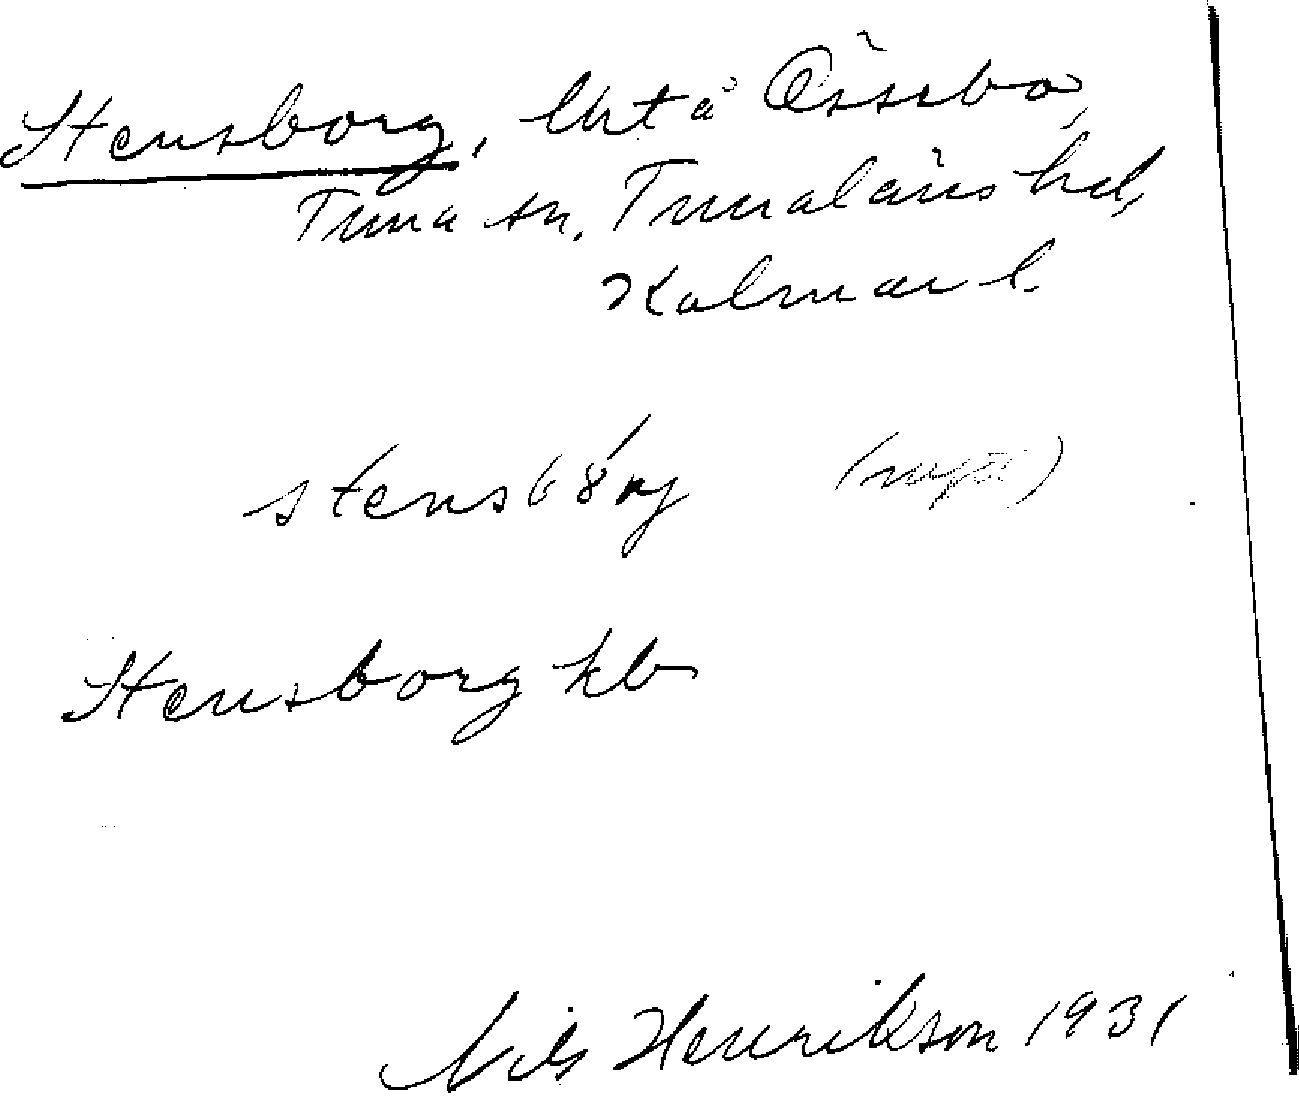 Stensborg, lht å Össebo,
Tuna sn, Tunaläns hd,
Kalmar l.
stensbórj
Stensborg kb
Nils Henrikson 1931